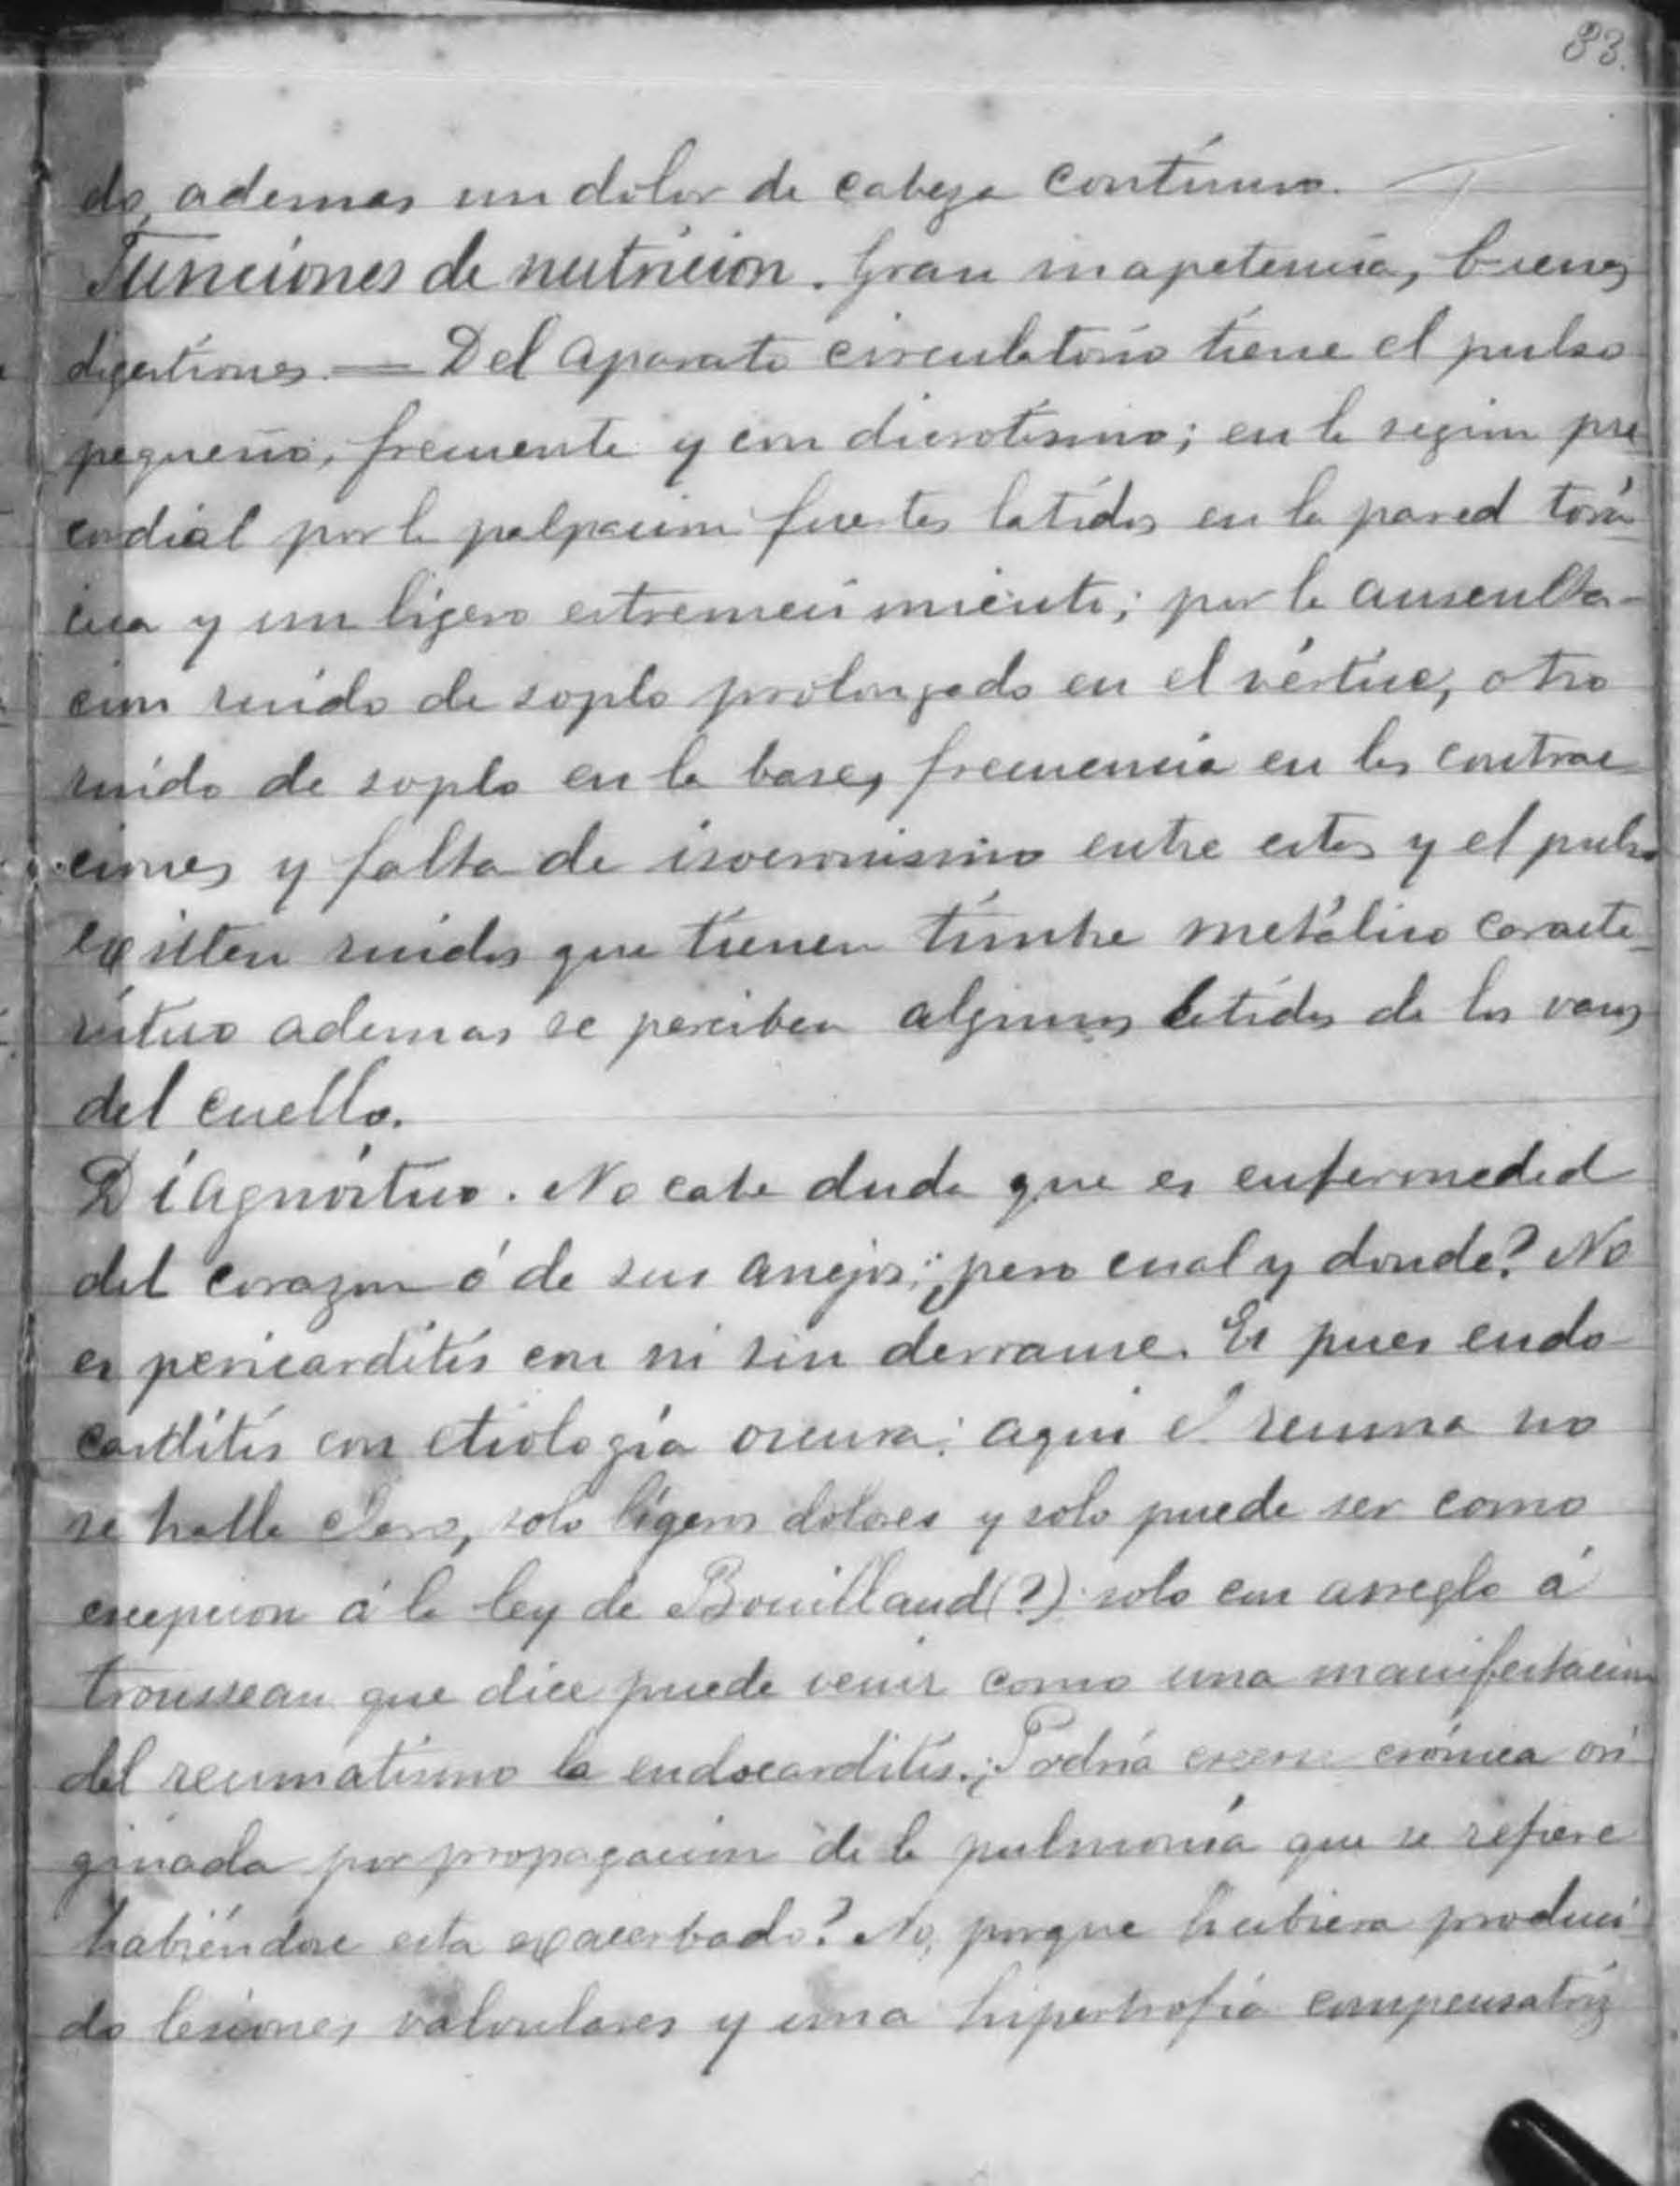 83.
do, ademas un dolor de cabeza contínuo.
Funciones de nutricion. Gran inapetencia, buenas
digestiones. — Del aparato circulatorio tiene el pulso
pequeño, frecuente y con dicrotismo; en la region pre
cordial por la palpacion fuertes latidos en la pared torá
cica y un ligero estremecimiento; por la ausculta-
cion ruido de soplo prolongado en el vértice, otro
ruido de soplo en la base, frecuencia en las contrac
ciones y falta de isocronismo entre estas y el pulso
existen ruidos que tienen timbre metálico caracte
rístico ademas se perciben algunos latidos de los vasos
del cuello.
Diagnóstico. No cabe duda que es enfermedad
del corazon ó de sus anejos; ¿pero cual y donde? No
es pericarditis con ni sin derrame. Es pues endo
carditis con etiología oscura: aqui el reuma no
se halla claro, solo ligeros dolores y solo puede ser como
escepcion á la ley de Bouillaud(?) solo con arreglo á
trousseau que dice puede venir como una manifestacion
del reumatismo la endocarditis. ¿Podria creerse crónica ori
ginada por propagacion de la pulmonía que se refiere
habiéndose esta exacerbado? No, porque hubiera produci
do lesiones valvulares y una hipertrofia compensatriz